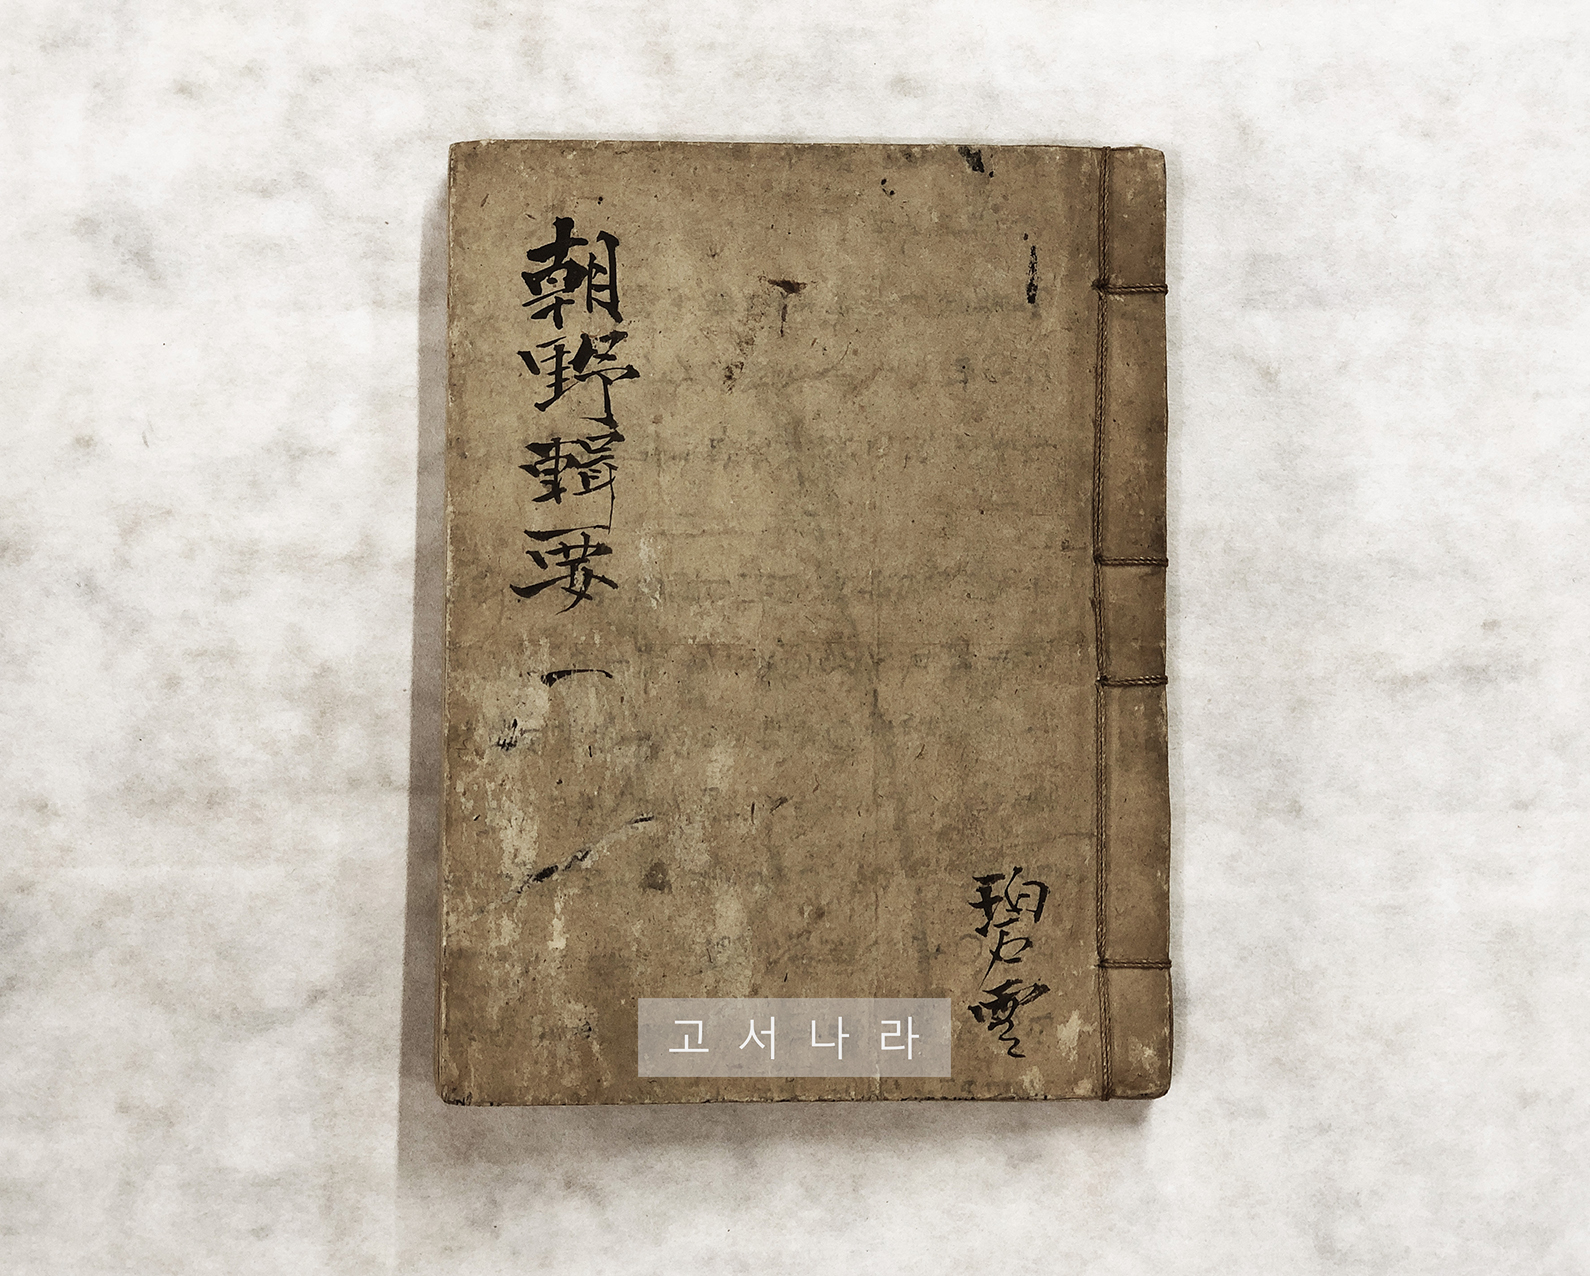 朝野輯要 一
碧雲
고서나라